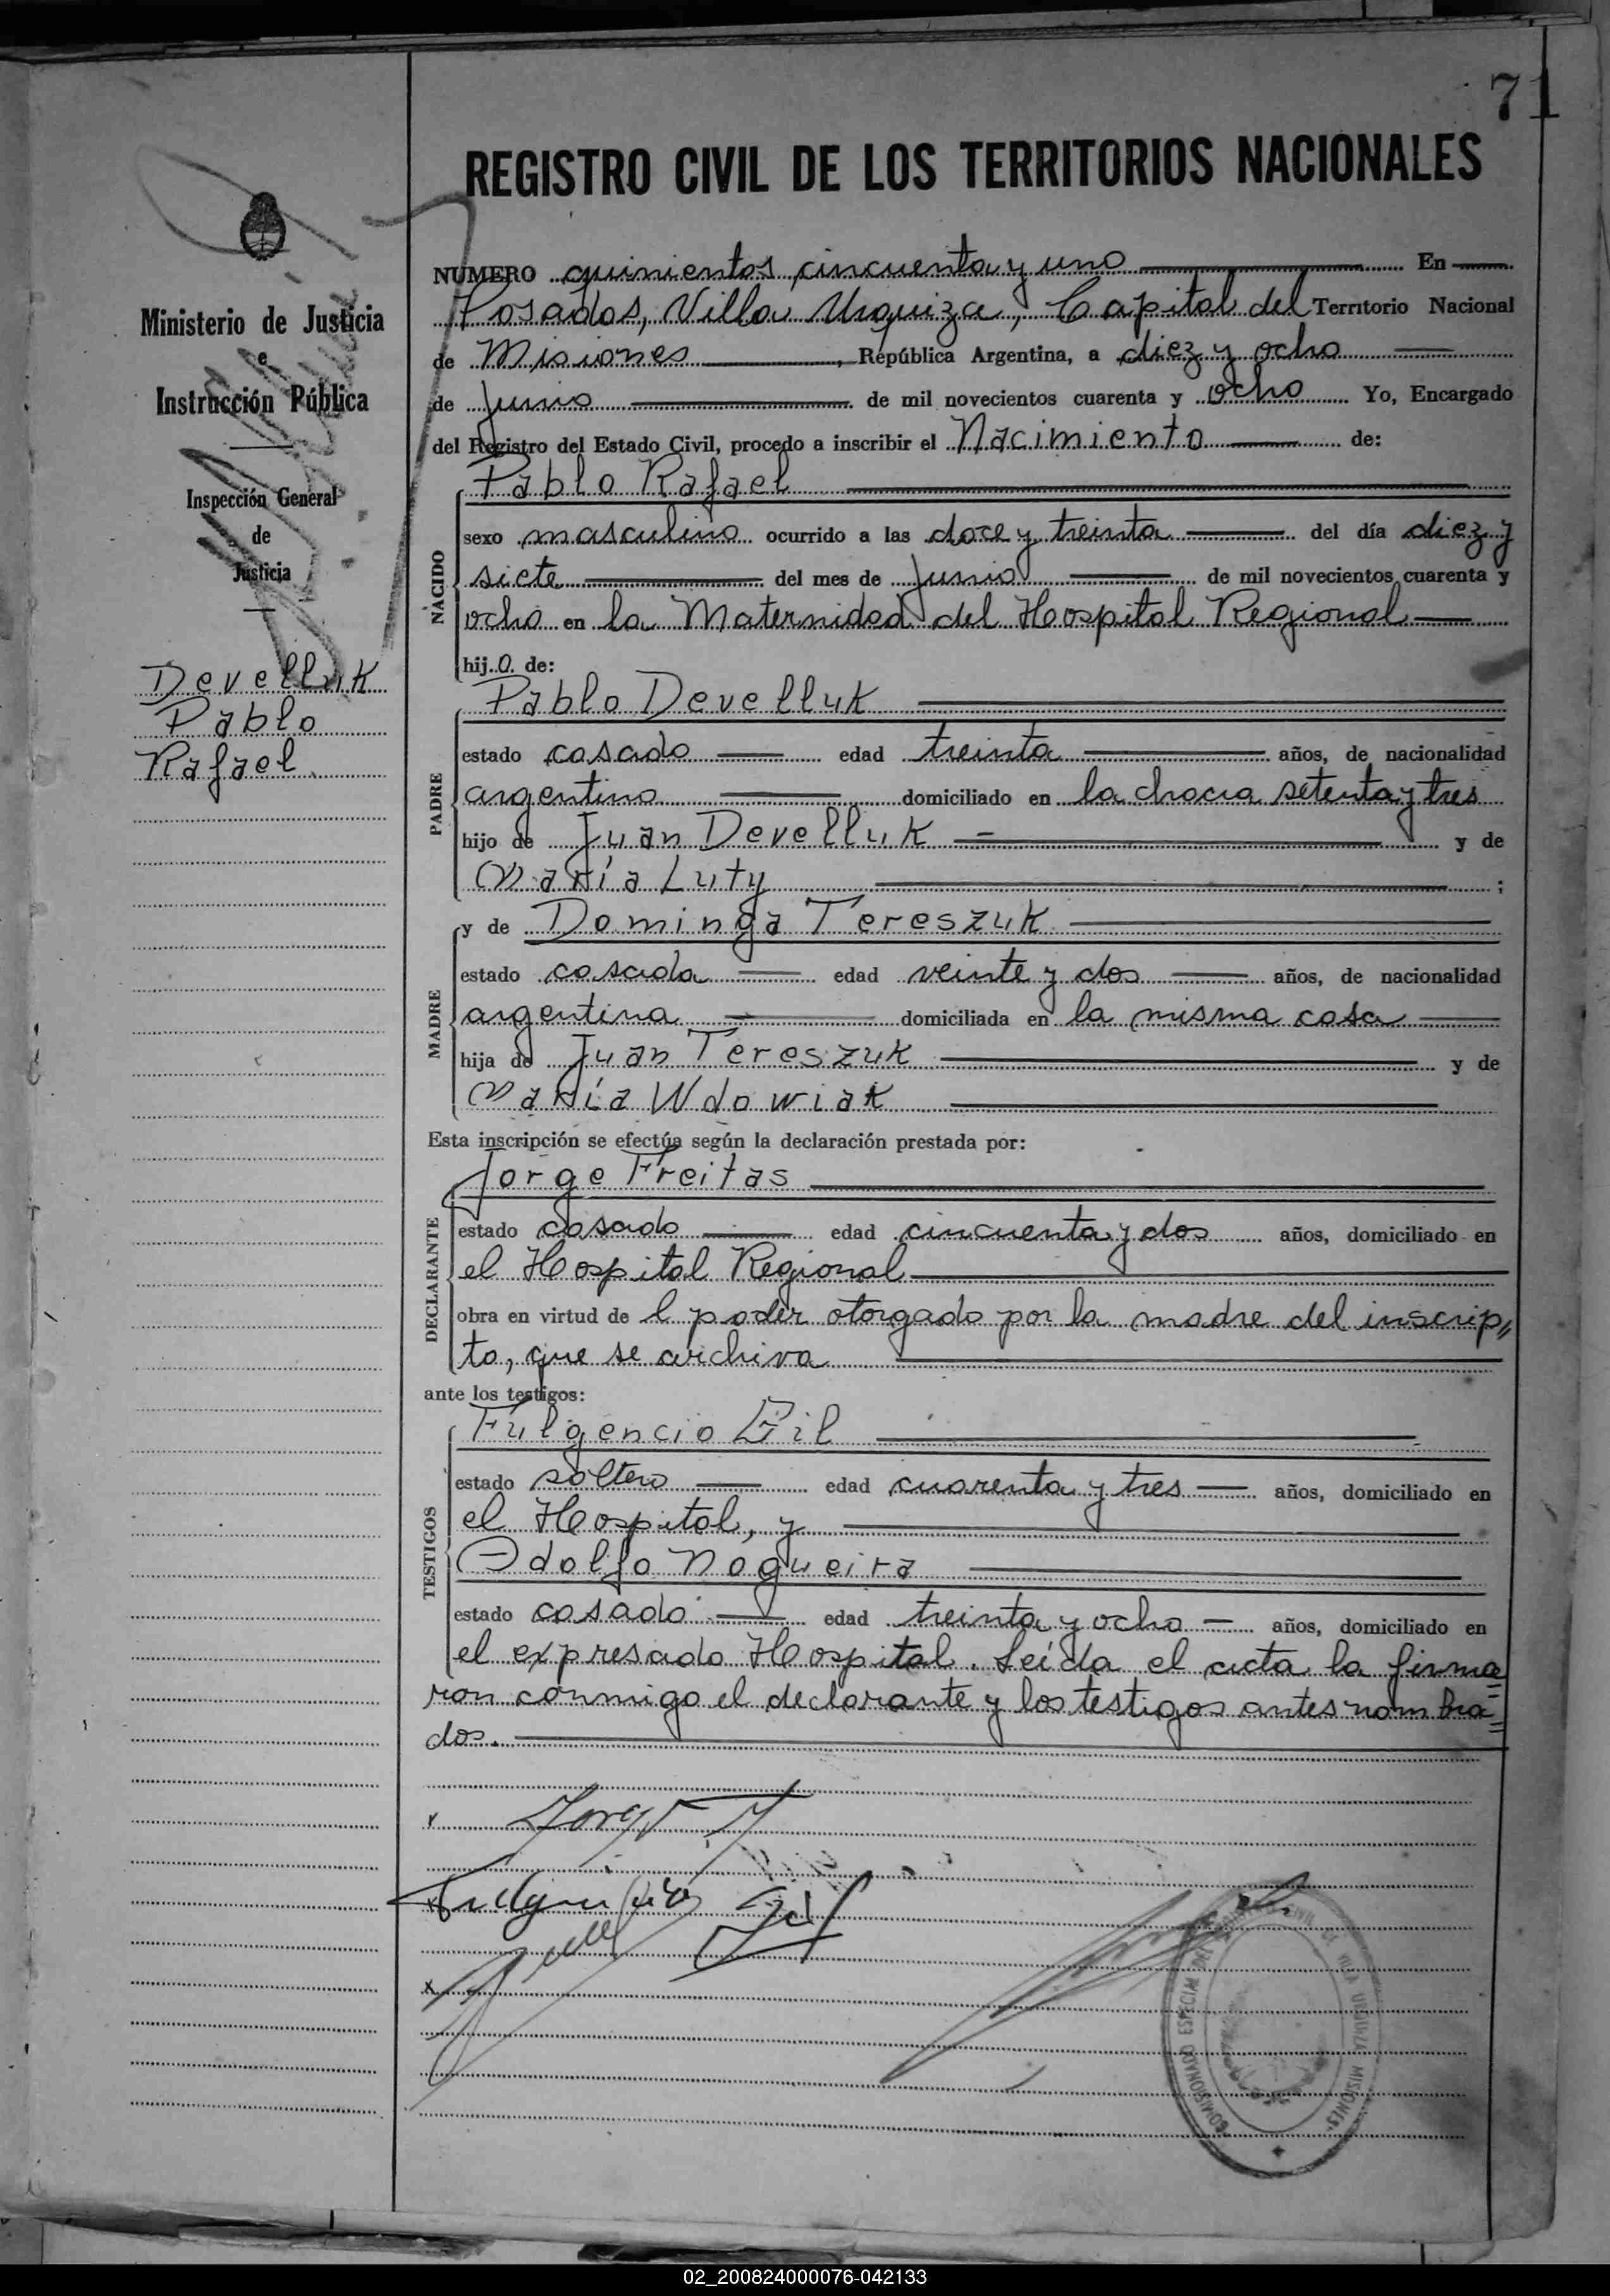 71
REGISTRO CIVIL DE LOS TERRITORIOS NACIONALES
Ministerio de Justicia
e
Instrucción Pública
Inspección General
de
Justicia
Develluk
Pablo
Rafael.
NUMERO quinientos cincuenta y uno En
Posadas, Villa Urquiza, Capital del Territorio Nacional
de Misiones, República Argentina, a diez y ocho
de Junio de mil novecientos cuarenta y ocho Yo, Encargado
del Registro del Estado Civil, procedo a inscribir el Nacimiento de:
NACIDO
Pablo Rafael
sexo masculino ocurrido a las doce y treinta del día diez y
siete del mes de Junio de mil novecientos cuarenta y
ocho en la Maternidad del Hospital Regional
hijo de:
PADRE
Pablo Develluk
estado casado edad treinta años, de nacionalidad
argentino domiciliado en la chacra setenta y tres
hijo de Juan Develluk y de
María Luty ;
MADRE
y de Dominga Tereszuk
estado casada edad veinte y dos años, de nacionalidad
argentina domiciliada en la misma casa
hija de Juan Tereszuk y de
María Wdowiak
Esta inscripción se efectúa según la declaración prestada por:
DECLARANTE
Jorge Freitas
estado casado edad cincuenta y dos años, domiciliado en
el Hospital Regional
obra en virtud de l poder otorgado por la madre del inscrip„
to, que se archiva
ante los testigos:
TESTIGOS
Fulgencio Gil
estado soltero edad cuarenta y tres años, domiciliado en
el Hospital, y
Adolfo Nogueira
estado casado edad treinta y ocho años, domiciliado en
el expresado Hospital. Leída el acta la firma=
ron conmigo el declarante y los testigos antes nombra=
dos.
Fulgencio Gil
COMISIONADO ESPECIAL DEL REGISTRO CIVIL DE VILLA URQUIZA MISIONES
02_200824000076-042133